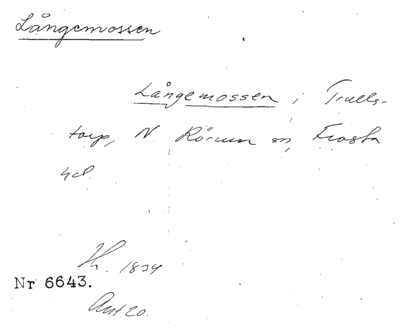 Långemossen
Långemossen i Trulls-
torp, N. Rörum sn, Frosta
hd.
1834
Nr 6643.